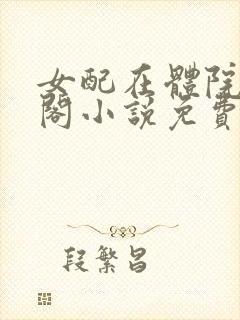 女配在體院
閣小說免費
段繁昌